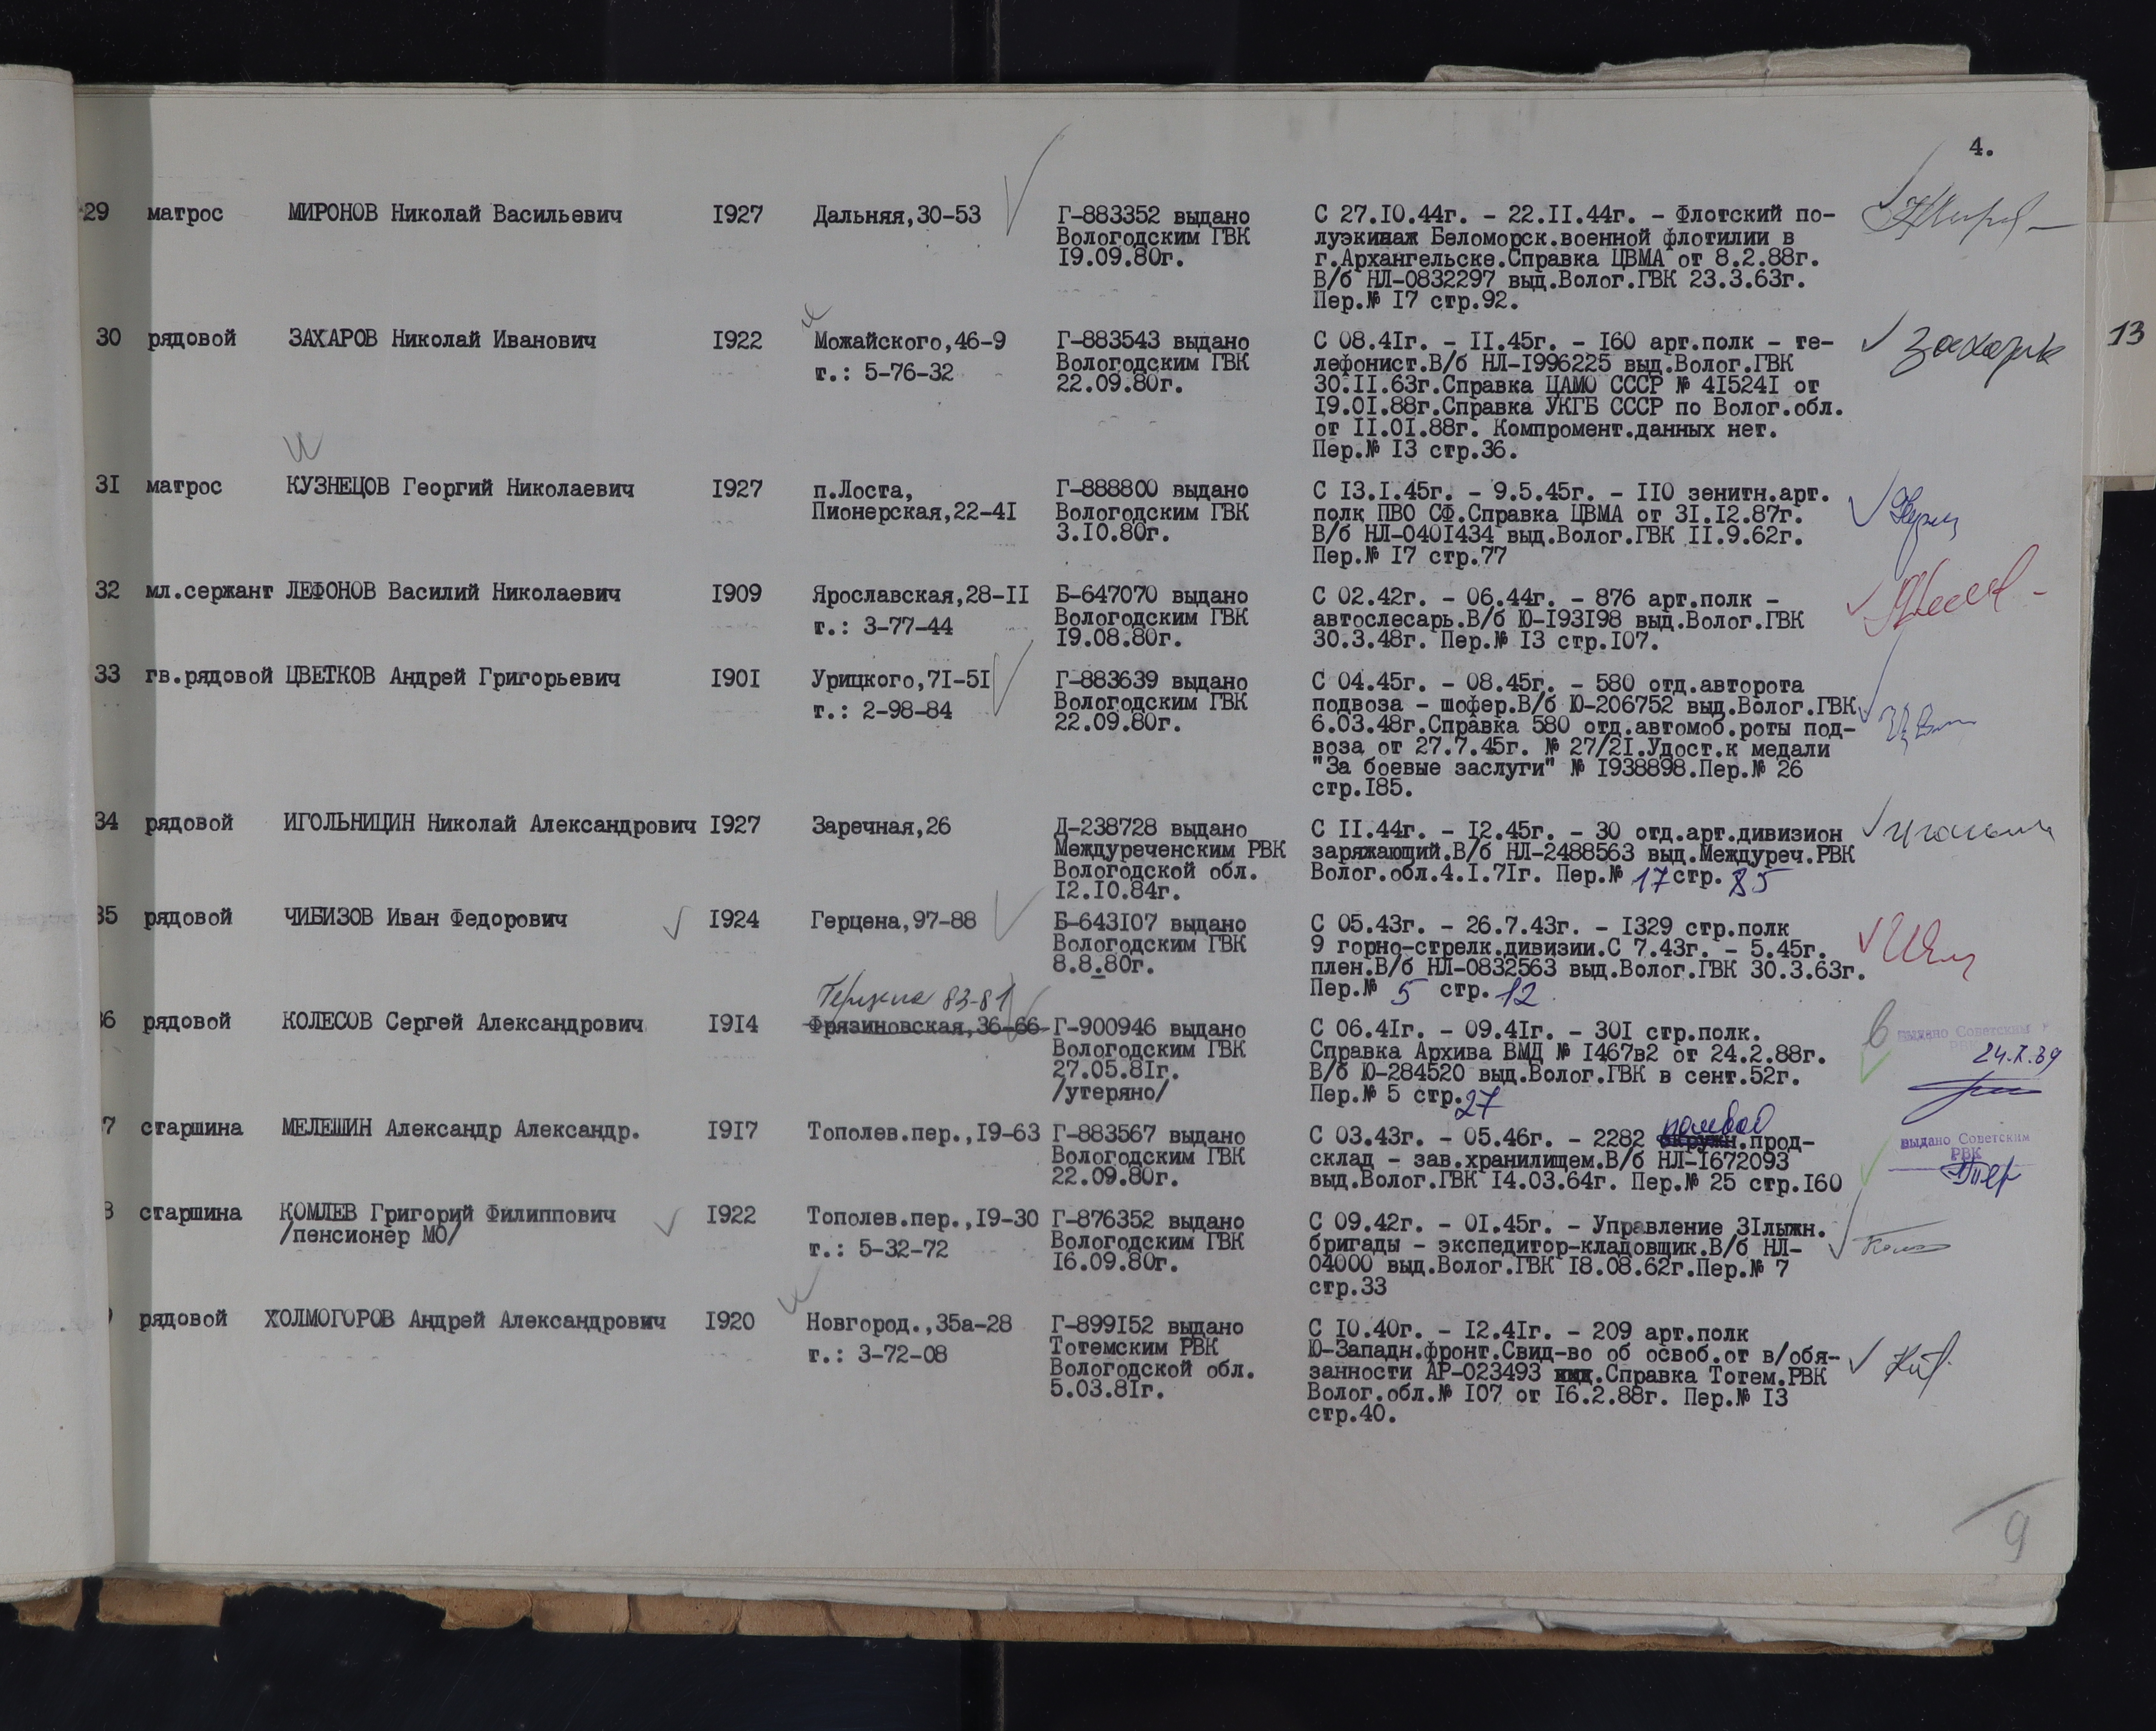 4.
29 матрос МИРОНОВ Николай Васильевич 1927 Дальняя,30-53 Г-883352 выдано Вологодским ГВК 19.09.80г.
С 27.10.44г. - 22.11.44г. - Флотский по-
луэкипаж Беломорск.военной флотилии в
г.Архангельске.Справка ЦВМА от 8.2.88г.
В/б НЛ-0832297 выд.Волог.ГВК 23.3.63г.
Пер.№ 17 стр.92.
30 рядовой ЗАХАРОВ Николай Иванович 1922 Можайского,46-9 т.: 5-76-32 Г-883543 выдано Вологодским ГВК 22.09.80г.
С 08.41г. - 11.45г. - 160 арт.полк - те-
лефонист.В/б НЛ-1996225 выд.Волог.ГВК
30.11.63г.Справка ЦАМО СССР № 415241 от
19.01.88г.Справка УКГБ СССР по Волог.обл.
от 11.01.88г. Компромент.данных нет.
Пер.№ 13 стр.36.
13
31 матрос КУЗНЕЦОВ Георгий Николаевич 1927 п.Лоста, Пионерская,22-41 Г-888800 выдано Вологодским ГВК 3.10.80г.
С 13.1.45г. - 9.5.45г. - 110 зенитн.арт.
полк ПВО СФ.Справка ЦВМА от 31.12.87г.
В/б НЛ-0401434 выд.Волог.ГВК 11.9.62г.
Пер.№ 17 стр.77
32 мл.сержант ЛЕФОНОВ Василий Николаевич 1909 Ярославская,28-11 т.: 3-77-44 Б-647070 выдано Вологодским ГВК 19.08.80г.
С 02.42г. - 06.44г. - 876 арт.полк -
автослесарь.В/б Ю-193198 выд.Волог.ГВК
30.3.48г. Пер.№ 13 стр.107.
33 гв.рядовой ЦВЕТКОВ Андрей Григорьевич 1901 Урицкого,71-51 т.: 2-98-84 Г-883639 выдано Вологодским ГВК 22.09.80г.
С 04.45г. - 08.45г. - 580 отд.авторота
подвоза - шофер.В/б Ю-206752 выд.Волог.ГВК
6.03.48г.Справка 580 отд.автомоб.роты под-
воза от 27.7.45г. № 27/21.Удост.к медали
"За боевые заслуги" № 1938898.Пер.№ 26
стр.185.
34 рядовой ИГОЛЬНИЦИН Николай Александрович 1927 Заречная,26 Д-238728 выдано Междуреченским РВК Вологодской обл. 12.10.84г.
С 11.44г. - 12.45г. - 30 отд.арт.дивизион
заряжающий.В/б НЛ-2488563 выд.Междуреч.РВК
Волог.обл.4.1.71г. Пер.№ 17 стр. 85
35 рядовой ЧИБИЗОВ Иван Федорович 1924 Герцена,97-88 Б-643107 выдано Вологодским ГВК 8.8.80г.
С 05.43г. - 26.7.43г. - 1329 стр.полк
9 горно-стрелк.дивизии.С 7.43г. - 5.45г.
плен.В/б НЛ-0832563 выд.Волог.ГВК 30.3.63г.
Пер.№ 5 стр. 12
Герцена 83-81
36 рядовой КОЛЕСОВ Сергей Александрович 1914 Фрязиновская,36-66 Г-900946 выдано Вологодским ГВК 27.05.81г. /утеряно/
С 06.41г. - 09.41г. - 301 стр.полк.
Справка Архива ВМД № 1467в2 от 24.2.88г.
В/б Ю-284520 выд.Волог.ГВК в сент.52г.
Пер.№ 5 стр.27
выдано Советским
РВК
7 старшина МЕЛЕШИН Александр Александр. 1917 Тополев.пер.,19-63 Г-883567 выдано Вологодским ГВК 22.09.80г.
полевой
С 03.43г. - 05.46г. - 2282 окружн.прод-
склад - зав.хранилищем.В/б НЛ-1672093
выд.Волог.ГВК 14.03.64г. Пер.№ 25 стр.160
выдано Советским
РВК
8 старшина КОМЛЕВ Григорий Филиппович /пенсионер МО/ 1922 Тополев.пер.,19-30 т.: 5-32-72 Г-876352 выдано Вологодским ГВК 16.09.80г.
С 09.42г. - 01.45г. - Управление 31лыжн.
бригады - экспедитор-кладовщик.В/б НЛ-
04000 выд.Волог.ГВК 18.08.62г.Пер.№ 7
стр.33
рядовой ХОЛМОГОРОВ Андрей Александрович 1920 Новгород.,35а-28 т.: 3-72-08 Г-899152 выдано Тотемским РВК Вологодской обл. 5.03.81г.
С 10.40г. - 12.41г. - 209 арт.полк
Ю-Западн.фронт.Свид-во об освоб.от в/обя-
занности АР-023493 .Справка Тотем.РВК
Волог.обл.№ 107 от 16.2.88г. Пер.№ 13
стр.40.
9